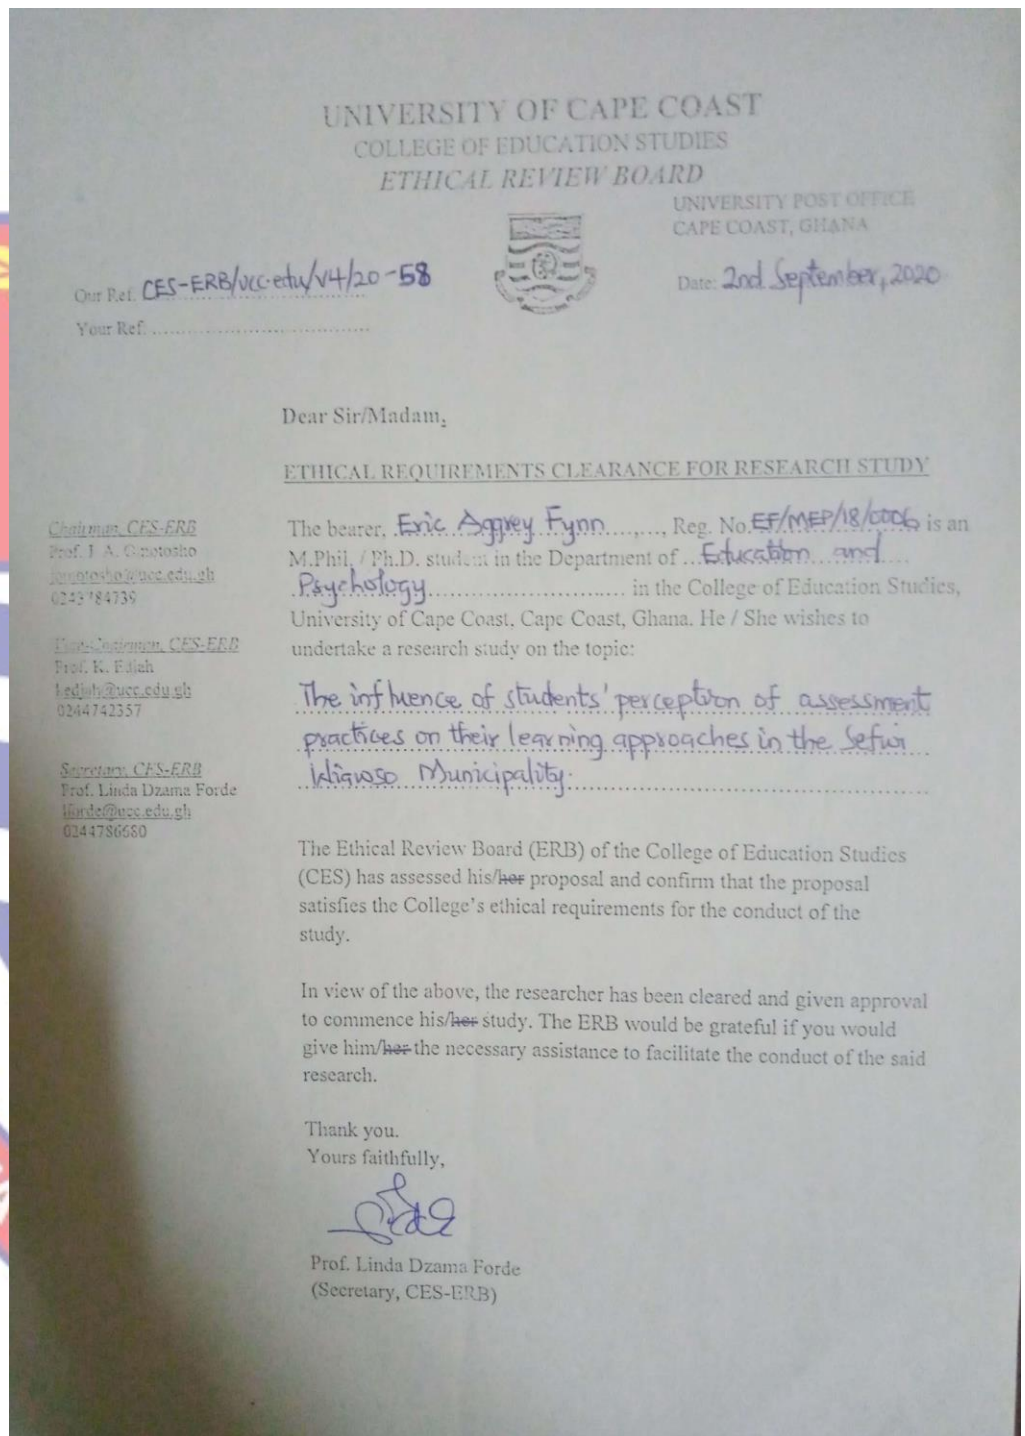 UNIVERSITY OF CAPE COAST
COLLEGE OF EDUCATION STUDIES
ETHICAL REVIEW BOARD
UNIVERSITY POST OFFICE
CAPE COAST, GHANA
Our Ref. CES-ERB/ucc.edu/V4/20-58
Date: 2nd September, 2020
Your Ref: ....................................
Dear Sir/Madam,
ETHICAL REQUIREMENTS CLEARANCE FOR RESEARCH STUDY
Chairman, CES-ERB
Prof. J. A.
0243784739
Vice-Chairman, CES-ERB
Prof. K. Edjah
kedjah@ucc.edu.gh
0244742357
Secretary, CES-ERB
Prof. Linda Dzama Forde
lforde@ucc.edu.gh
0244786680
The bearer, Eric Aggrey Fynn ......,..., Reg. No. EF/MEP/18/0006 is an
M.Phil. / Ph.D. student in the Department of ...Education and....
Psychology............................ in the College of Education Studies,
University of Cape Coast, Cape Coast, Ghana. He / She wishes to
undertake a research study on the topic:
The influence of students' perception of assessment
practices on their learning approaches in the Sefwi
Wiawso Municipality.
The Ethical Review Board (ERB) of the College of Education Studies
(CES) has assessed his/her proposal and confirm that the proposal
satisfies the College's ethical requirements for the conduct of the
study.
In view of the above, the researcher has been cleared and given approval
to commence his/her study. The ERB would be grateful if you would
give him/her the necessary assistance to facilitate the conduct of the said
research.
Thank you.
Yours faithfully,
Prof. Linda Dzama Forde
(Secretary, CES-ERB)